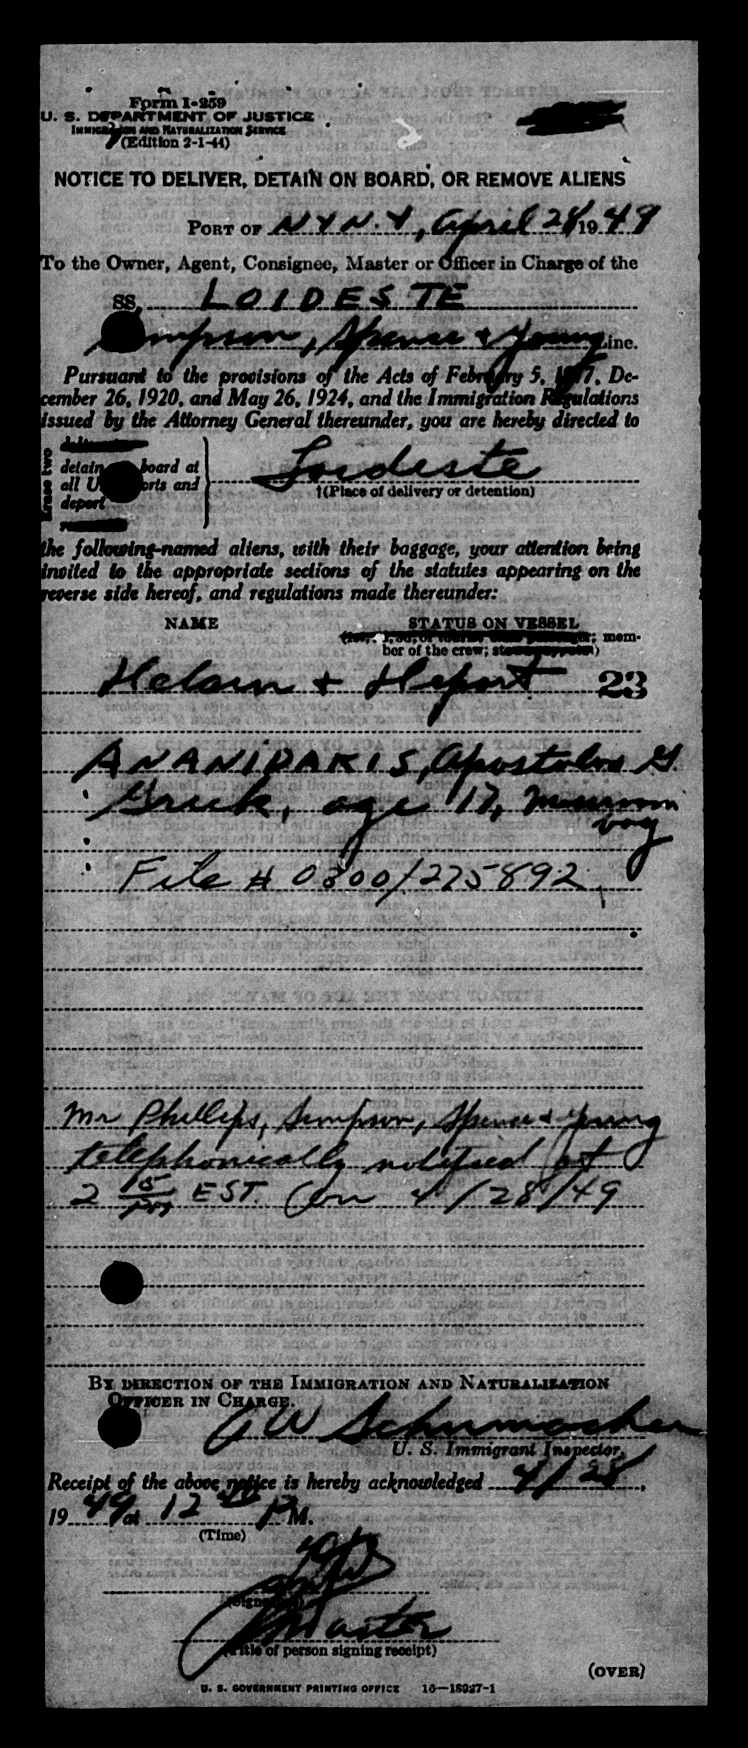 Form I-259
U. S. DEPARTMENT OF JUSTICE
IMMIGRATION AND NATURALIZATION SERVICE
(Edition 2-1-44)
NOTICE TO DELIVER, DETAIN ON BOARD, OR REMOVE ALIENS
PORT OF N Y N. Y, April 28 19 49
To the Owner, Agent, Consignee, Master or Officer in Charge of the
SS. LOIDESTE
Simpson, Spence & Young Line.
Pursuant to the provisions of the Acts of February 5, 1917, De-
cember 26, 1920, and May 26, 1924, and the Immigration Regulations
issued by the Attorney General thereunder, you are hereby directed to
Erase two
detain board at
all U ports and
deport
Loideste
†(Place of delivery or detention)
the following-named aliens, with their baggage, your attention being
invited to the appropriate sections of the statutes appearing on the
reverse side hereof, and regulations made thereunder:
NAME STATUS ON VESSEL
mem-
ber of the crew;
Detain & Deport 23
ANANIDAKIS, Apostolos G.
Greek, age 17, messroom
boy
File # 0300/275892
Mr Phillips, Simpson, Spence & Young
telephonically notified at
2 15 PM EST. on 4/28/49
BY DIRECTION OF THE IMMIGRATION AND NATURALIZATION
OFFICER IN CHARGE.
Schumacher
U. S. Immigrant Inspector.
Receipt of the above notice is hereby acknowledged 4/28,
19 49 at 12 P M.
(Time)
(Signature)
Master
(Title of person signing receipt)
(OVER)
U. S. GOVERNMENT PRINTING OFFICE 16—18927-1